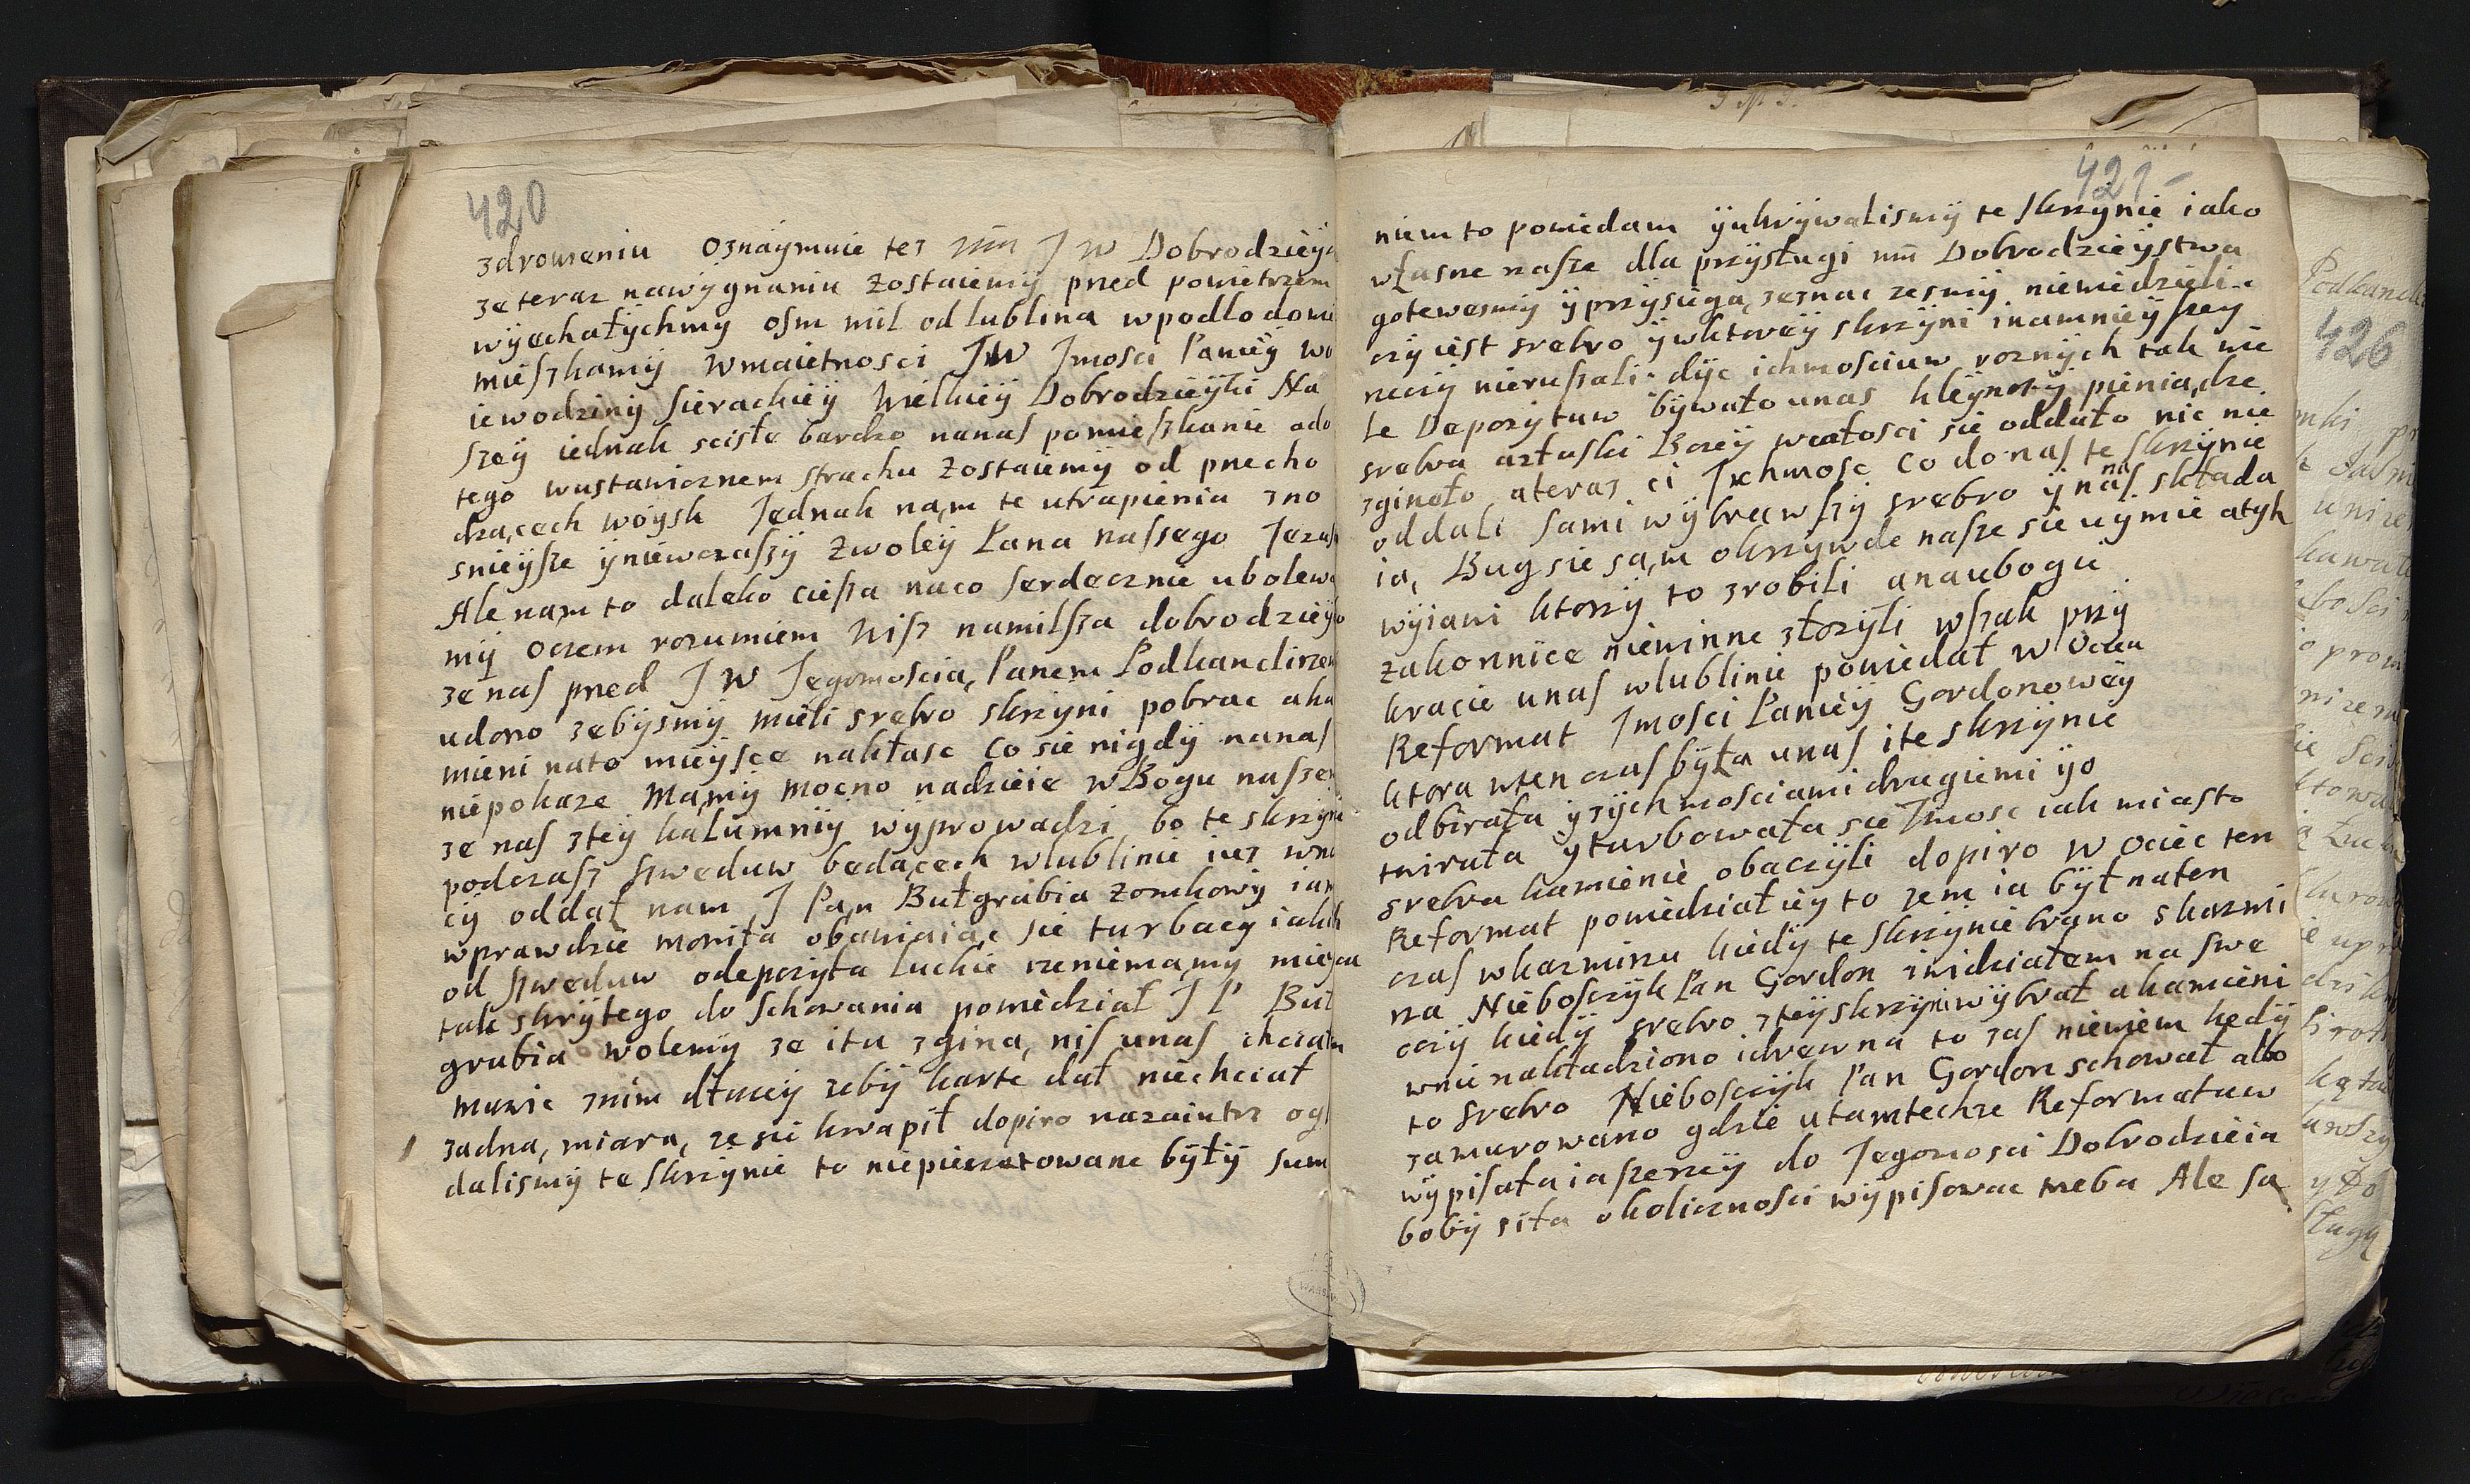 420
zdrowieniu oznaÿmuie tez mm J W Dobrodzieÿ
ze teraz nawÿgnaniu zostaiemÿ pred powietrzem
wÿechałÿchmÿ osm mil od lublina wpodło domi
mieszkamÿ wmaietnosci JW Jmosci Panieÿ wo
iewodzinÿ sierackieÿ Wielkieÿ Dobrodzieÿki Na
szeÿ iednak sciste bardzo nanas pomieszkanie odo
tego wustawicznem strachu zostaiemÿ od precho
dzącech woÿsk Jednak nąm te utrapienia zno
snieÿsze ÿniewczaszÿ zwoleÿ Pana nassego Jezus
Ale nąm to daleko ciesza naco serdecznie ubolewa
mÿ oczem rozumiem Wisz namilsza dobrodzieÿ
ze nas pred J W Jegomoscią Panem Podkanclirzem
udono zebÿsmÿ mieli srebro skrzÿni pobrac aka
mieni nato mieÿsce nakłasc co sie nigdÿ nanas
niepokaze Mąmÿ mocno nadzieie w Bogu nasze
ze nas zteÿ kalumniÿ wÿprowadzi bo te skrzÿni
podczasz szweduw bedącech wlublinie iuz wno
cÿ oddał nam J Pąn Bułgrabia zomkowÿ iam
wprawdzie moniła obawiaiąc sie turbacÿ iakich
od szweduw odepozyta luckie zeniemąmÿ mieÿsca
tak skrÿtego do schowania powiedział J P Buł
grabia wolemÿ ze itu zginą nis unas chciałm
mawic znim dłuzeÿ zebÿ karte dał niechciał
zadną miarą ze sie kwapił dopiro nazaiutrz ogl
dalismÿ te skrzÿnie to niepieczetowane bÿłÿ sum
421
niem to powiedam ÿukrÿwalismÿ te skrzÿnie iako
własne nasze dla przÿsługi mm Dobrodzieÿstwa
gotewesmÿ ÿprzÿsiegą zeznac zesmÿ niewiedzieli
czÿ iest srebro ÿwktoreÿ skrzÿni inamnieÿszeÿ
rzeczÿ nieruszali dÿc ichmosciuw roznÿch tak wie
le Depozÿtuw bÿwało unas kleÿnotÿ pieniądze
srebra azłaski Bozeÿ wcałosci sie oddało nic nie
zgineło ateraz ci Jchmosc co do nas te skrzÿnie
oddali sami wÿbrawszÿ srebro ÿ na nas składa
ią Bug sie sąm okrzÿwde nasze sie uÿmie atÿk
wÿiawi ktorzÿ to zrobili anaubogie
zakonnice niewinne złozÿli wszak przÿ
kracie unas wlublinie powiedał W Ociec
Reformat Jmosci Panieÿ Gordonoweÿ
ktora wten czas bÿła unas ite skrzÿnie
odbirała ÿ zÿchmosciami drugiemi ÿo
twirała ÿturbowała sie Jmosc iak miasto
srebra kamienie obaczÿli dopiro W ociec ten
Reformat powiedział ieÿ to zem ia bÿł naten
czas wkazmirzu kiedÿ te skrzÿnie brano skazmi
rza Nieboszczÿk Pan Gordon iwidziałem na swe
oczÿ kiedÿ srebro zteÿ skrzÿni wÿbrał akamieni
wnie nakładziono idrewna to zas niewiem kedÿ
to srebro Nieboszczÿk Pan Gordon schował albo
zamurowano gdzie utamtechze Reformatuw
wÿpisała ia szerzeÿ do Jegomosci Dobrodzieia
bobÿ siła okolicznosci wÿpisowac treba Ale są
426